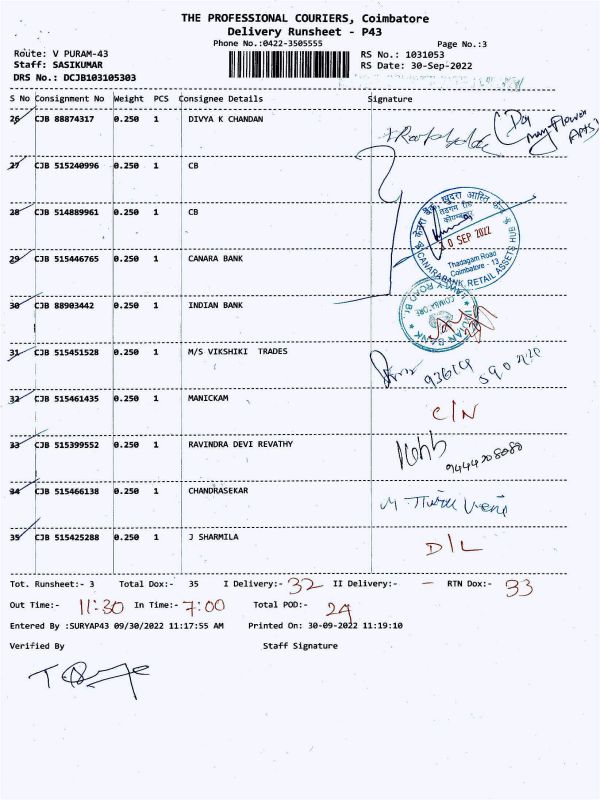 THE PROFESSIONAL COURIERS, Coimbatore
Delivery Runsheet - P43
Phone No.:0422-3505555 Page No.:3
Route: V PURAM-43 RS No.: 1031053
Staff: SASIKUMAR RS Date: 30-Sep-2022
DRS No.: DCJB103105303
S No Consignment No Weight PCS Consignee Details Signature
26 CJB 88874317 0.250 1 DIVYA K CHANDAN
27 CJB 515240996 0.250 1 CB
28 CJB 514889961 0.250 1 CB
0 SEP 2022
Thadagam Road
Coimbatore - 13
CANARA BANK, RETAIL ASSETS HUB
29 CJB 515446765 0.250 1 CANARA BANK
30 CJB 88903442 0.250 1 INDIAN BANK
COIMBATORE
INDIAN BANK
31 CJB 515451528 0.250 1 M/S VIKSHIKI TRADES
32 CJB 515461435 0.250 1 MANICKAM C/N
33 CJB 515399552 0.250 1 RAVINDRA DEVI REVATHY
34 CJB 515466138 0.250 1 CHANDRASEKAR
35 CJB 515425288 0.250 1 J SHARMILA D/L
Tot. Runsheet:- 3 Total Dox:- 35 I Delivery:- 32 II Delivery:- - RTN Dox:- 33
Out Time:- 11:30 In Time:- 7:00 Total POD:- 29
Entered By :SURYAP43 09/30/2022 11:17:55 AM Printed On: 30-09-2022 11:19:10
Verified By Staff Signature